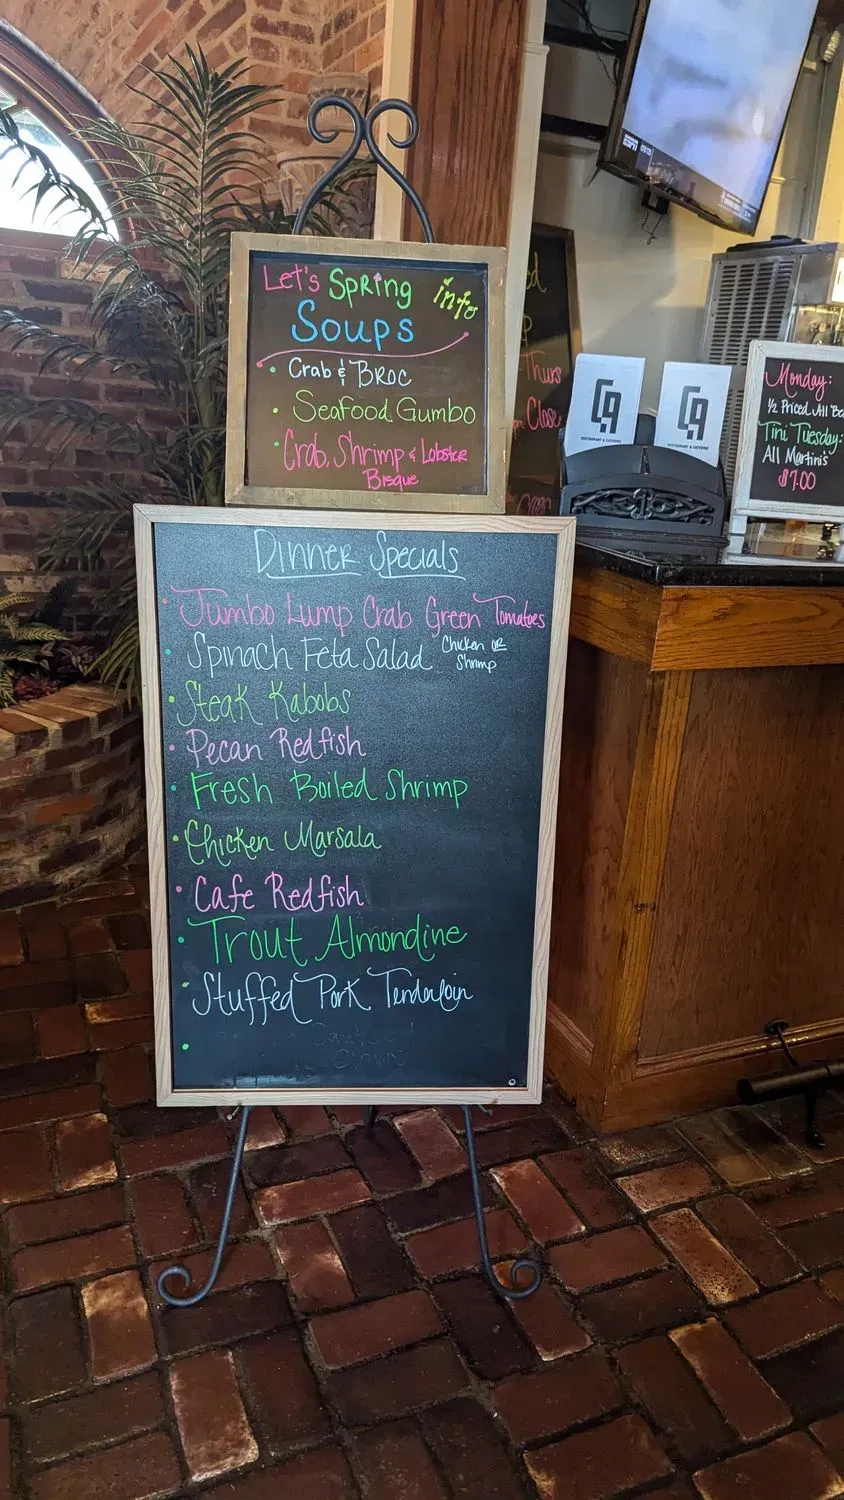 Let's Spring into
Soups
• Crab & Broc
• Seafood Gumbo
• Crab, Shrimp & Lobster
Bisque
Dinner Specials
• Jumbo Lump Crab Green Tomatoes
• Spinach Feta Salad Chicken or
Shrimp
• Steak Kabobs
• Pecan Redfish
• Fresh Boiled Shrimp
• Chicken Marsala
• Cafe Redfish
• Trout Almondine
• Stuffed Pork Tenderloin
Thurs
Close
C9
RESTAURANT & CATERING
C9
RESTAURANT & CATERING
Monday:
½ Priced All
Tini Tuesday:
All Martini's
$7.00
ESPN